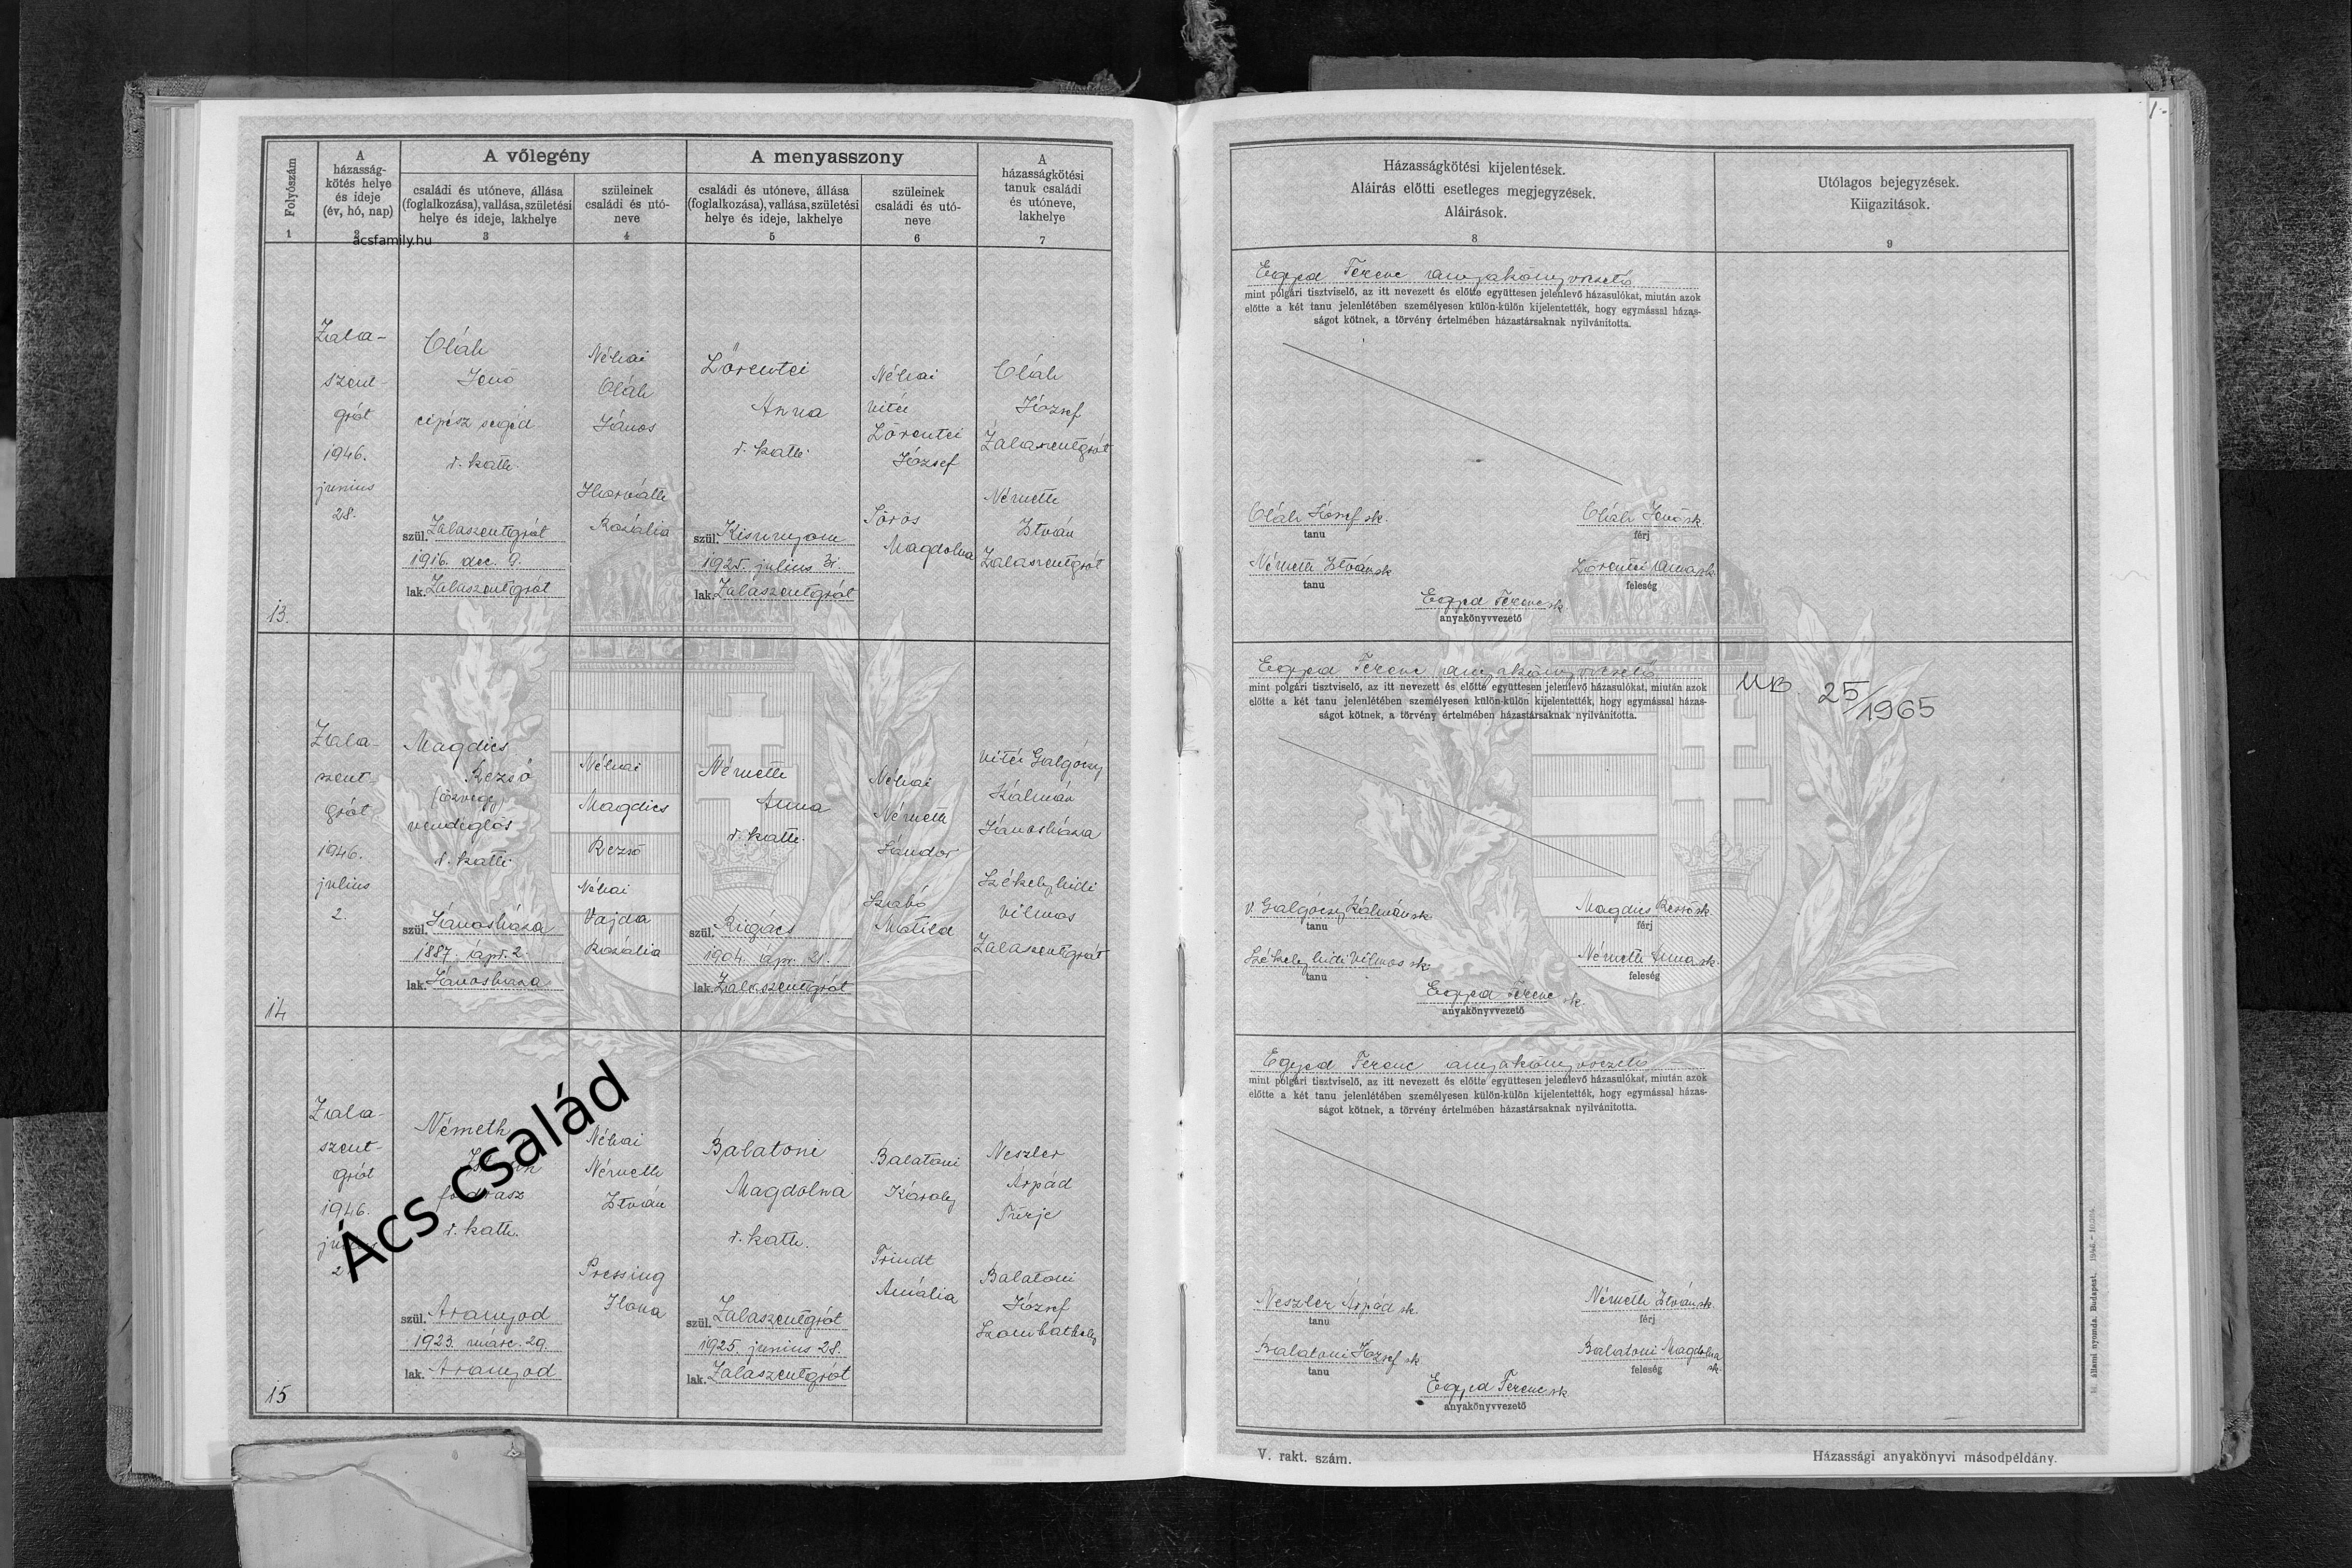 Folyószám
1
A
házasság-
kötés helye
és ideje
(év, hó, nap)
2
acsfamily.hu
A vőlegény
családi és utóneve, állása
(foglalkozása), vallása, születési
helye és ideje, lakhelye
3
szüleinek
családi és utó-
neve
4
A menyasszony
családi és utóneve, állása
(foglalkozása), vallása, születési
helye és ideje, lakhelye
5
szüleinek
családi és utó-
neve
6
A
házasságkötési
tanuk családi
és utóneve,
lakhelye
7
13.
Zala-
szent-
grót
1946.
junius
28.
Oláh
Jenő
cipész segéd
r. kath.
szül. Zalaszentgrót
1916. dec. 9.
lak. Zalaszentgrót
Néhai
Oláh
János
Horváth
Rozália
Lőrentei
Anna
r. kath.
szül.
1925. julius 31.
lak. Zalaszentgrót
Néhai
vitéz
Lőrentei
József
Sörös
Magdolna
Oláh
József
Zalaszentgrót
Németh
István
Zalaszentgrót
14
Zala-
szent-
grót
1946.
julius
2.
Magdics
Rezső
(özvegy)
vendéglős
r. kath.
szül. Jánosháza
1887. ápr. 2.
lak. Jánosháza
Néhai
Magdics
Rezső
Néhai
Vajda
Rozália
Németh
Anna
r. kath.
szül. Rigács
1904. ápr. 21.
lak. Zalaszentgrót
Néhai
Németh
Sándor
Szabó
Matild
vitéz Galgóczy
Kálmán
Jánosháza
Székelyhidi
Vilmos
Zalaszentgrót
15
Zala-
szent-
grót
1946.
Németh
fodrász
r. kath.
szül. Aranyod
1923. márc. 29.
lak. Aranyod
Ács család
Néhai
Németh
István
Pressing
Ilona
Balatoni
Magdolna
r. kath.
szül. Zalaszentgrót
1925. junius 28.
lak. Zalaszentgrót
Balatoni
Károly
Trindt
Amália
Neszler
Árpád
Türje
Balatoni
József
Szombathely
Házasságkötési kijelentések.
Aláirás előtti esetleges megjegyzések.
Aláirások.
8
Utólagos bejegyzések.
Kiigazitások.
9
1.-
Egyed Ferenc anyakönyvvezető
mint polgári tisztviselő, az itt nevezett és előtte együttesen jelenlevő házasulókat, miután azok
előtte a két tanu jelenlétében személyesen külön-külön kijelentették, hogy egymással házas-
ságot kötnek, a törvény értelmében házastársaknak nyilvánitotta.
Oláh József sk. Oláh Jenő sk.
tanu férj
Németh István sk Lőrentei Anna sk.
tanu feleség
Egyed Ferenc sk
anyakönyvvezető
Egyed Ferenc anyakönyvvezető
mint polgári tisztviselő, az itt nevezett és előtte együttesen jelenlevő házasulókat, miután azok
előtte a két tanu jelenlétében személyesen külön-külön kijelentették, hogy egymással házas-
ságot kötnek, a törvény értelmében házastársaknak nyilvánitotta.
25/1965
v. Galgóczy Kálmán sk. Magdics Rezső sk.
tanu férj
Székelyhidi Vilmos sk. Németh Anna sk.
tanu feleség
Egyed Ferenc sk.
anyakönyvvezető
Egyed Ferenc anyakönyvvezető
mint polgári tisztviselő, az itt nevezett és előtte együttesen jelenlevő házasulókat, miután azok
előtte a két tanu jelenlétében személyesen külön-külön kijelentették, hogy egymással házas-
ságot kötnek, a törvény értelmében házastársaknak nyilvánitotta.
Neszler Árpád sk. Németh István sk.
tanu férj
Balatoni József sk Balatoni Magdolna sk.
tanu feleség
Egyed Ferenc sk
anyakönyvvezető
V. rakt. szám.
Házassági anyakönyvi másodpéldány.
állami nyomda. Budapest.